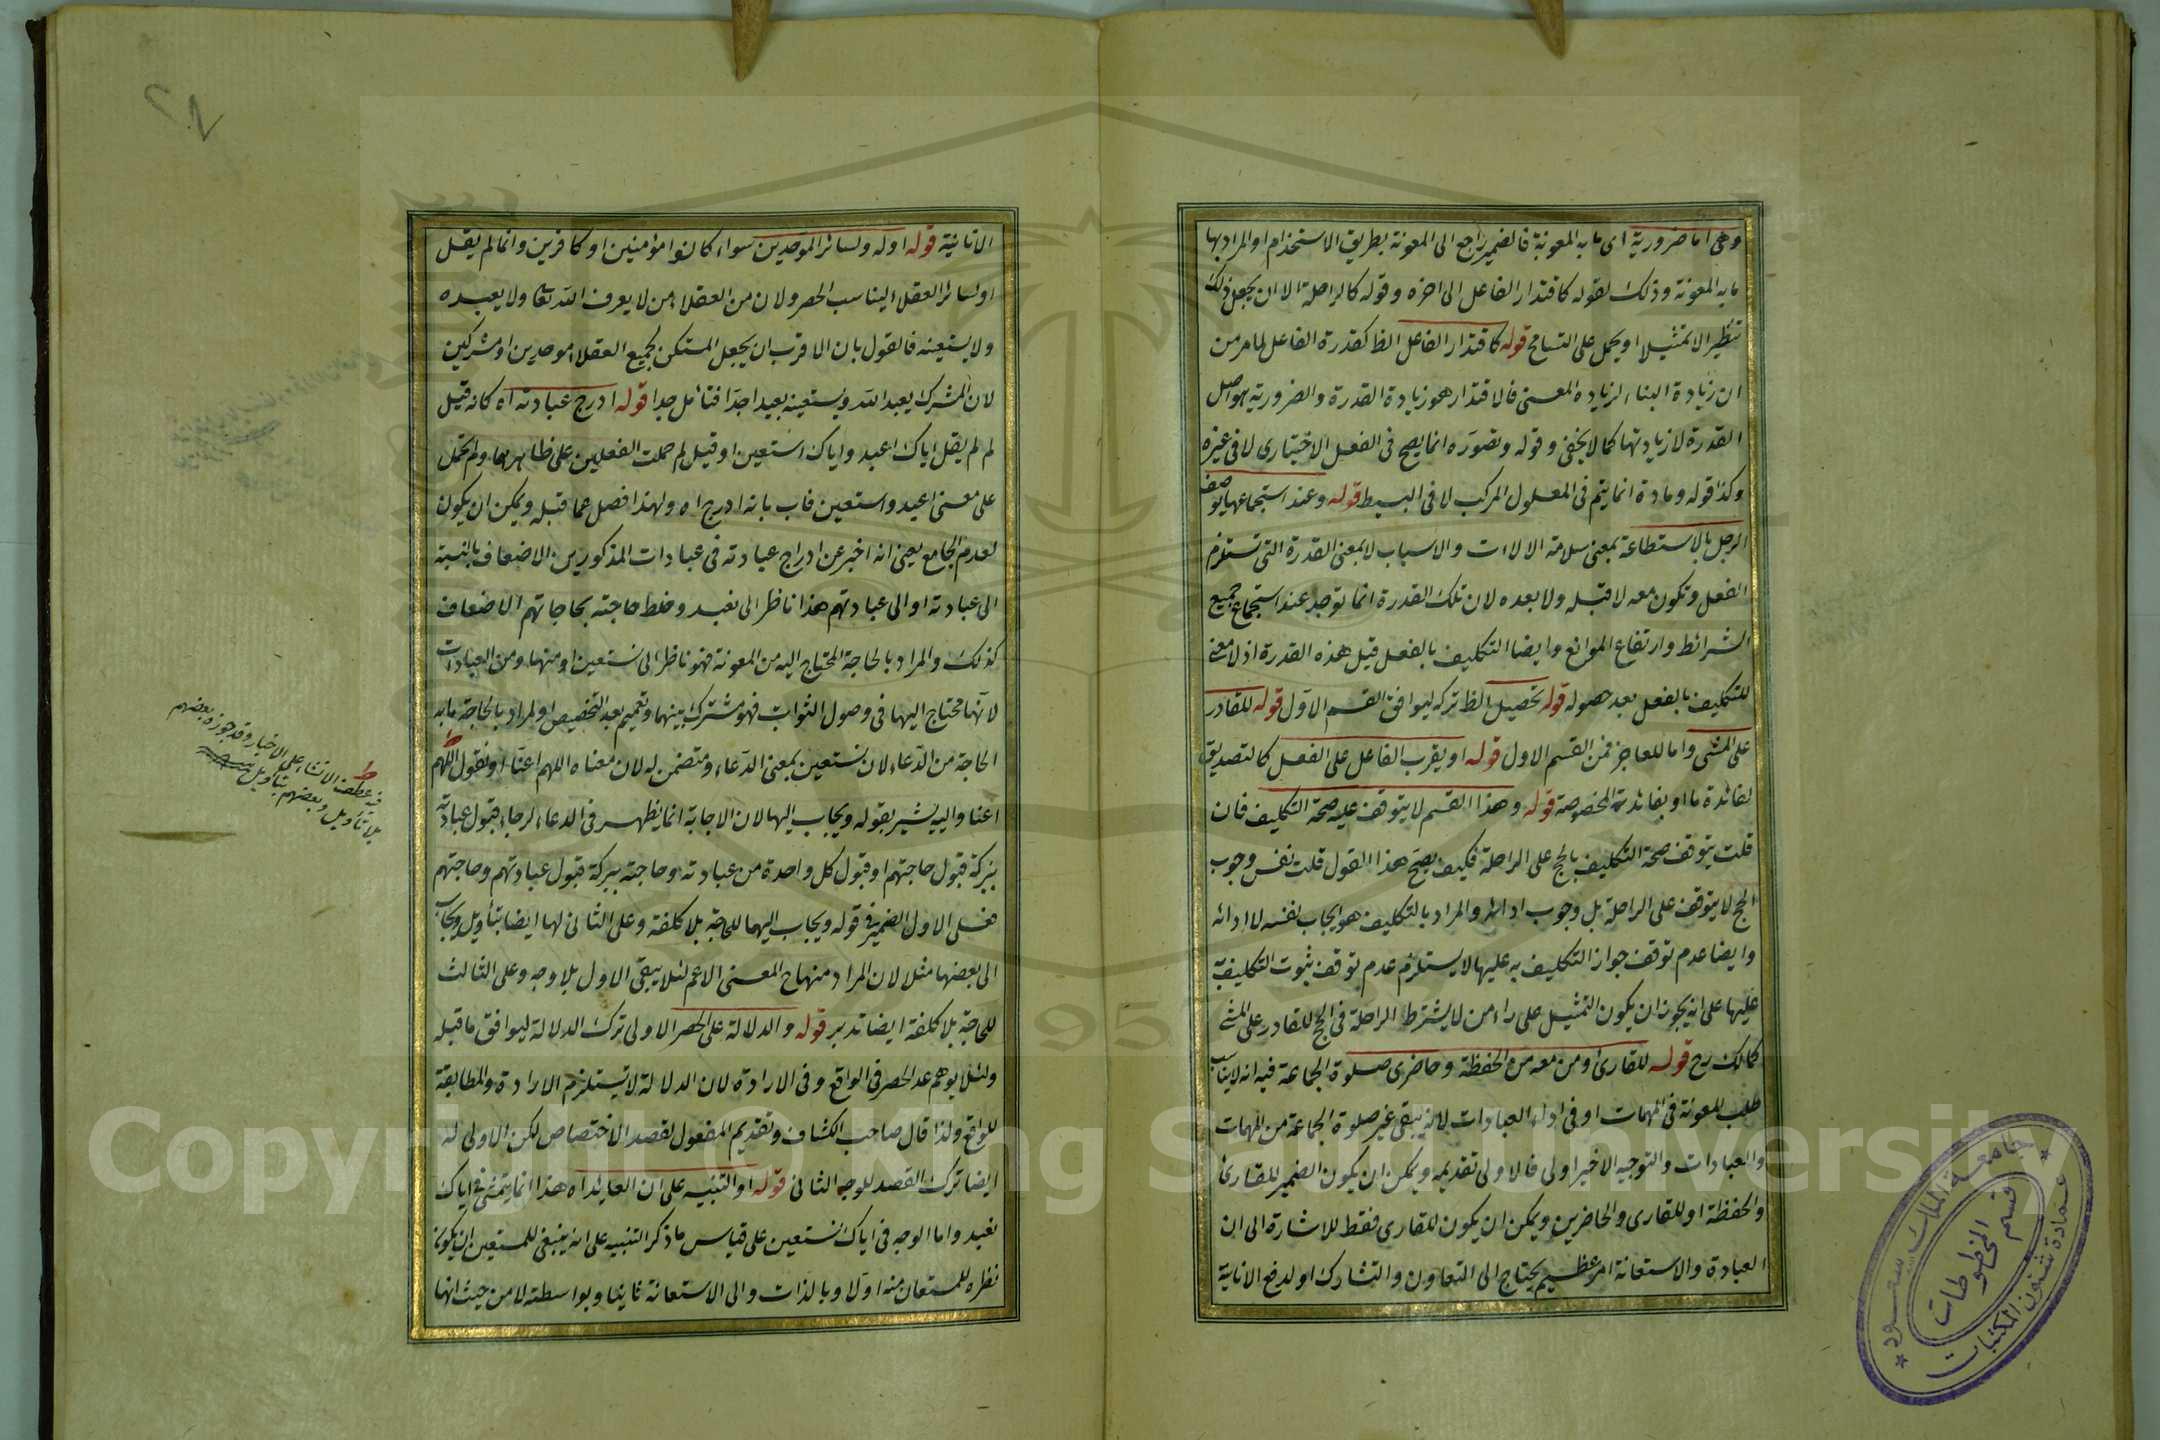 وهى اما ضرورية اى ما به المعونة فالضمير راجع الى المعونة بطريق الاستخدام او المراد بها
ما به المعونة وذلك لقوله كاقتدار الفاعل الى اخره وقوله كالراحلة الا ان يجعل ذلك
تنظيرا لا تمثيلا او يحمل على التسامح قوله كاقتدار الفاعل الظ كقدرة الفاعل لما مر من
ان زيادة البناء لزيادة المعنى فالاقتدار هو زيادة القدرة والضرورية هو اصل
القدرة لا زيادتها كما لا يخفى وقوله وتصوره انما يصح فى الفعل الاختيارى لا فى غيره
وكذا قوله ومادة انما يتم فى المعلول المركب لا فى البسيط قوله وعند استجماعها يوصف
الرجل بالاستطاعة بمعنى سلامة الالات والاسباب لا بمعنى القدرة التى تستلزم
الفعل وتكون معه لا قبله ولا بعده لان تلك القدرة انما توجد عند استجماع جميع
الشرائط وارتفاع الموانع وايضا التكليف بالفعل قبل هذه القدرة اذ لا معنى
للتكليف بالفعل بعد حصوله قوله تحصيل الظ تركه ليوافق القسم الاول قوله للقادر
على المشى واما للعاجز فمن القسم الاول قوله او يقرب الفاعل على الفعل كالتصديق
بفائدة ما او بفائدته المخصوصة قوله وهذا القسم لا يتوقف عليه صحة التكليف فان
قلت يتوقف صحة التكليف بالحج على الراحلة فكيف يصح هذا القول قلت نفس وجوب
الحج لا يتوقف على الراحلة بل وجوب ادائه والمراد بالتكليف هو ايجاب نفسه لا ادائه
وايضا عدم توقف جواز التكليف به عليها لا يستلزم عدم توقف ثبوت التكليف به
عليها على انه يجوز ان يكون التمثيل على راء من لا يشترط الراحلة فى الحج للقادر على المشى
كمالك رح قوله للقارئ ومن معه من الحفظة وحاضرى صلوة الجماعة فيه انه لا يناسب
طلب المعونة فى المهمات او فى اداء العبادات لانه يبقى غير صلوة الجماعة من المهمات
والعبادات والتوجيه الاخير اولى فالاولى تقديمه ويمكن ان يكون الضمير للقارئ
والحفظة او للقارى والحاضرين ويمكن ان يكون للقارى فقط للاشارة الى ان
العبادة والاستعانة امر عظيم يحتاج الى التعاون والتشارك او لدفع الانانية
٢٨
الانانية قوله اوله ولسائر الموحدين سواء كانوا مؤمنين او كافرين وانما لم يقل
او لسائر العقلاء ليناسب الحصر ولان من العقلاء من لا يعرف الله تعا ولا يعبده
ولا يستعينه فالقول بان الاقرب ان يجعل المستكن لجميع العقلاء موحدين او مشركين
لان المشرك يعبد الله ويستعينه بعيد جدا فتائمل جدا قوله ادرج عبادته اه كانه قيل
لم لم يقل اياك اعبد واياك استعين او قيل لم حملت الفعلين على ظاهرهما ولم تحمل
على معنى اعبد واستعين فاجاب بانه ادرج اه ولهذا فصل عما قبله ويمكن ان يكون
لعدم الجامع يعنى انه اخبر عن ادراج عبادته فى عبادات المذكورين الاضعاف بالنسبة
الى عبادته او الى عبادتهم هذا ناظر الى نعبد وخلط حاجته بحاجاتهم الاضعاف
كذلك والمراد بالحاجة المحتاج اليه من المعونة فهو ناظر الى نستعين او منها ومن العبادات
لانها محتاج اليها فى وصول الثواب فهو مشترك بينهما وتعميم بعد التخصيص او المراد بالحاجة ما به
الحاجة من الدعاء لان نستعين بمعنى الدعاء ومتضمن له لان معناه اللهم اعنا او نقول اللهم
اعنا واليه يشير بقوله ويجاب اليها لان الاجابة انما يظهر فى الدعاء لرجاء قبول عبادته
ببركة قبول حاجتهم او قبول كل واحدة من عبادته وحاجته ببركة قبول عبادتهم وحاجتهم
فعلى الاول الضمير فى قوله ويجاب اليها للحاجة بلا كلفة وعلى الثانى لها ايضا بتأويل ويجاب
الى بعضها مثلا لان المراد منها ح المعنى الاعم لئلا يبقى الاول بلا وجه وعلى الثالث
للحاجة بلا كلفة ايضا تدبر قوله والدلالة على الحصر الاولى ترك الدلالة ليوافق ما قبله
ولئلا يوهم عد الحصر فى الواقع وفى الارادة لان الدلالة لا تستلزم الارادة والمطابقة
للواقع ولذا قال صاحب الكشاف وتقديم المفعول لقصد الاختصاص لكن الاولى له
ايضا ترك القصد للوجه الثانى قوله والتنبيه على ان العابد اه هذا انما يتمشى فى اياك
نعبد واما الوجه فى اياك نستعين على قياس ما ذكر التنبيه على انه ينبغى للمستعين ان يكون
نظره للمستعان منه اولا وبالذات والى الاستعانة ثانيا وبواسطته لا من حيث انها
فيه عطف الانشاء على الاخبار وقد جوزه بعضهم
بلا تأويل وبعضهم بتأويل
جامعة الملك سعود
قسم المخطوطات
عمادة شئون المكتبات
Copyright © King Saud University
1957